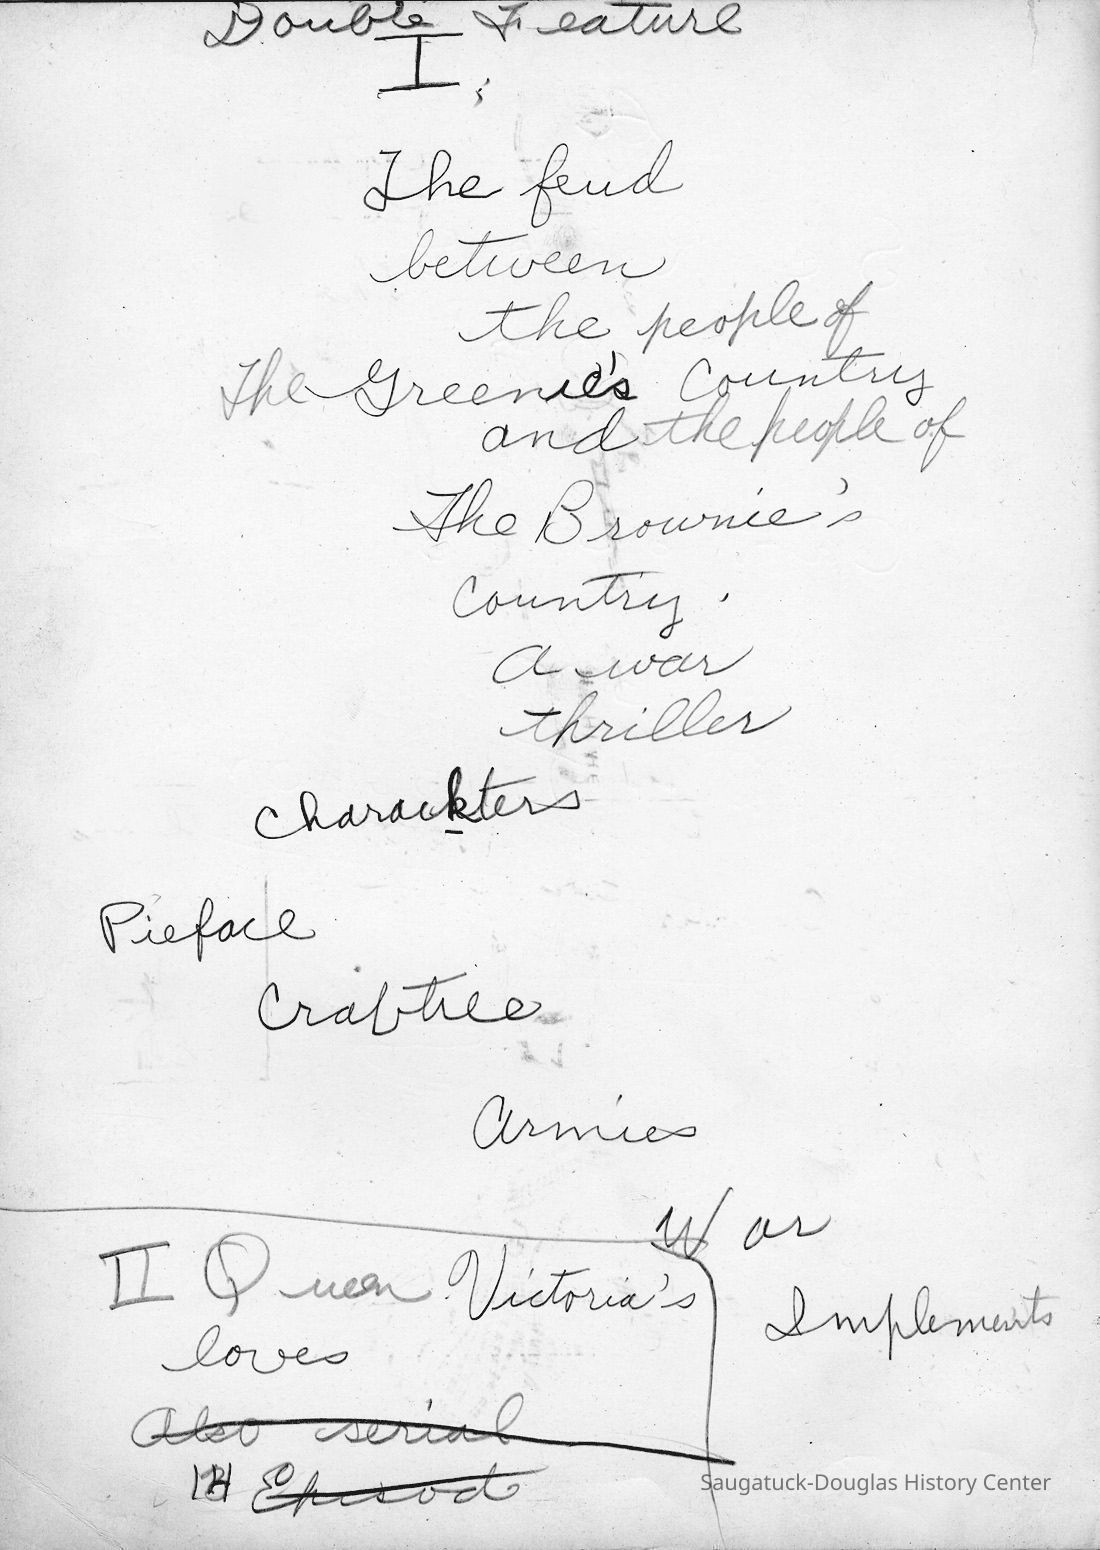 Double Feature
I.
The feud
between
the people of
The Greenie's Country
and the people of
The Brownie's
Country.
A war
thriller
Charackters
Pieface
Crabtree
Armies
War
Implements
II Queen Victoria's
loves
Also serial
Episod
Saugatuck-Douglas History Center